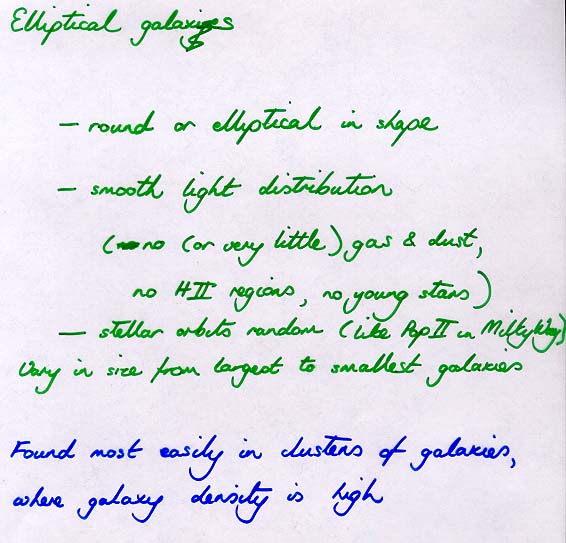 Elliptical galaxies
— round or elliptical in shape
— smooth light distribution
(no (or very little) gas & dust,
no HII regions, no young stars)
— stellar orbits random (like Pop II in Milky Way)
Vary in size from largest to smallest galaxies
Found most easily in clusters of galaxies,
where galaxy density is high